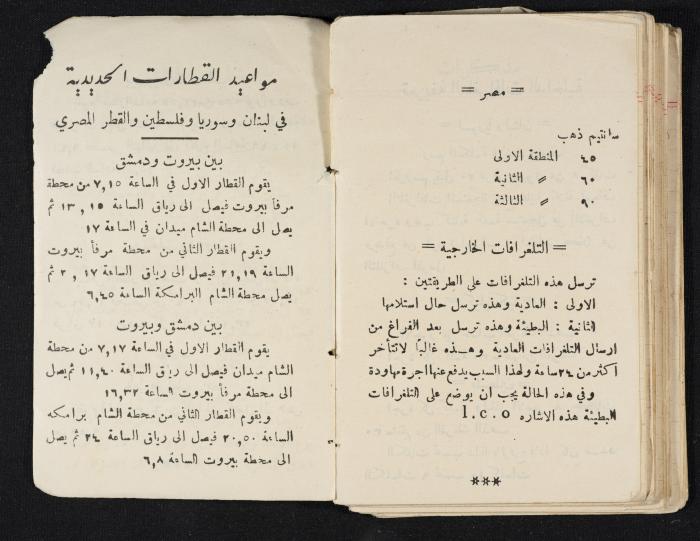 = مصر =
سانتيم ذهب
٤٥ المنطقة الاولى
٦٠ 〃 الثانية
٩٠ 〃 الثالثة
= التلغرافات الخارجية =
ترسل هذه التلغرافات على الطريقتين :
الاولى : العادية وهذه ترسل حال استلامها
الثانية : البطيئة وهذه ترسل بعد الفراغ من
ارسال التلغرافات العادية وهذه غالبًا لاتتأخر
أكثر من ٢٤ ساعة ولهذا السبب يدفع عنها اجرة مهاودة
وفي هذه الحالة يجب ان يوضع على التلغرافات
البطيئة هذه الاشاره l.c.o
***
مواعيد القطارات الحديدية
في لبنان وسوريا وفلسطين والقطر المصري
بين بيروت ودمشق
يقوم القطار الاول في الساعة ٧,١٥ من محطة
مرفأ بيروت فيصل الى رياق الساعة ١٣,١٥ ثم
يصل الى محطة الشام ميدان في الساعة ١٧
ويقوم القطار الثاني من محطة مرفأ بيروت
الساعة ٢١,١٩ فيصل الى رياق الساعة ٢,١٧ ثم
يصل محطة الشام البرامكة الساعة ٦,٤٥
بين دمشق وبيروت
يقوم القطار الاول في الساعة ٧,١٧ من محطة
الشام ميدان فيصل الى رياق الساعة ١١,٤٠ ثم يصل
الى محطة مرفأ بيروت الساعة ١٦,٣٢
ويقوم القطار الثاني من محطة الشام برامكه
الساعة ٢٠,٥٠ فيصل الى رياق الساعة ٢٤ ثم يصل
الى محطة بيروت الساعة ٦,٨